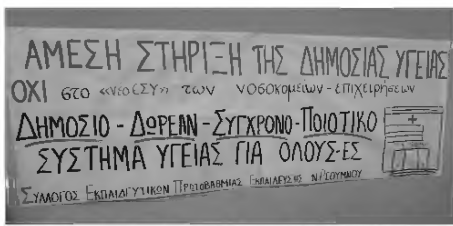 ΑΜΕΣΗ ΣΤΗΡΙΞΗ ΤΗΣ ΔΗΜΟΣΙΑΣ ΥΓΕΙΑΣ
ΟΧΙ στο «νέο ΕΣΥ» των νοσοκομείων - επιχειρήσεων
ΔΗΜΟΣΙΟ - ΔΩΡΕΑΝ - ΣΥΓΧΡΟΝΟ - ΠΟΙΟΤΙΚΟ
ΣΥΣΤΗΜΑ ΥΓΕΙΑΣ ΓΙΑ ΟΛΟΥΣ-ΕΣ
ΣΥΛΛΟΓΟΣ ΕΚΠΑΙΔΕΥΤΙΚΩΝ ΠΡΩΤΟΒΑΘΜΙΑΣ ΕΚΠΑΙΔΕΥΣΗΣ Ν. ΡΕΘΥΜΝΟΥ